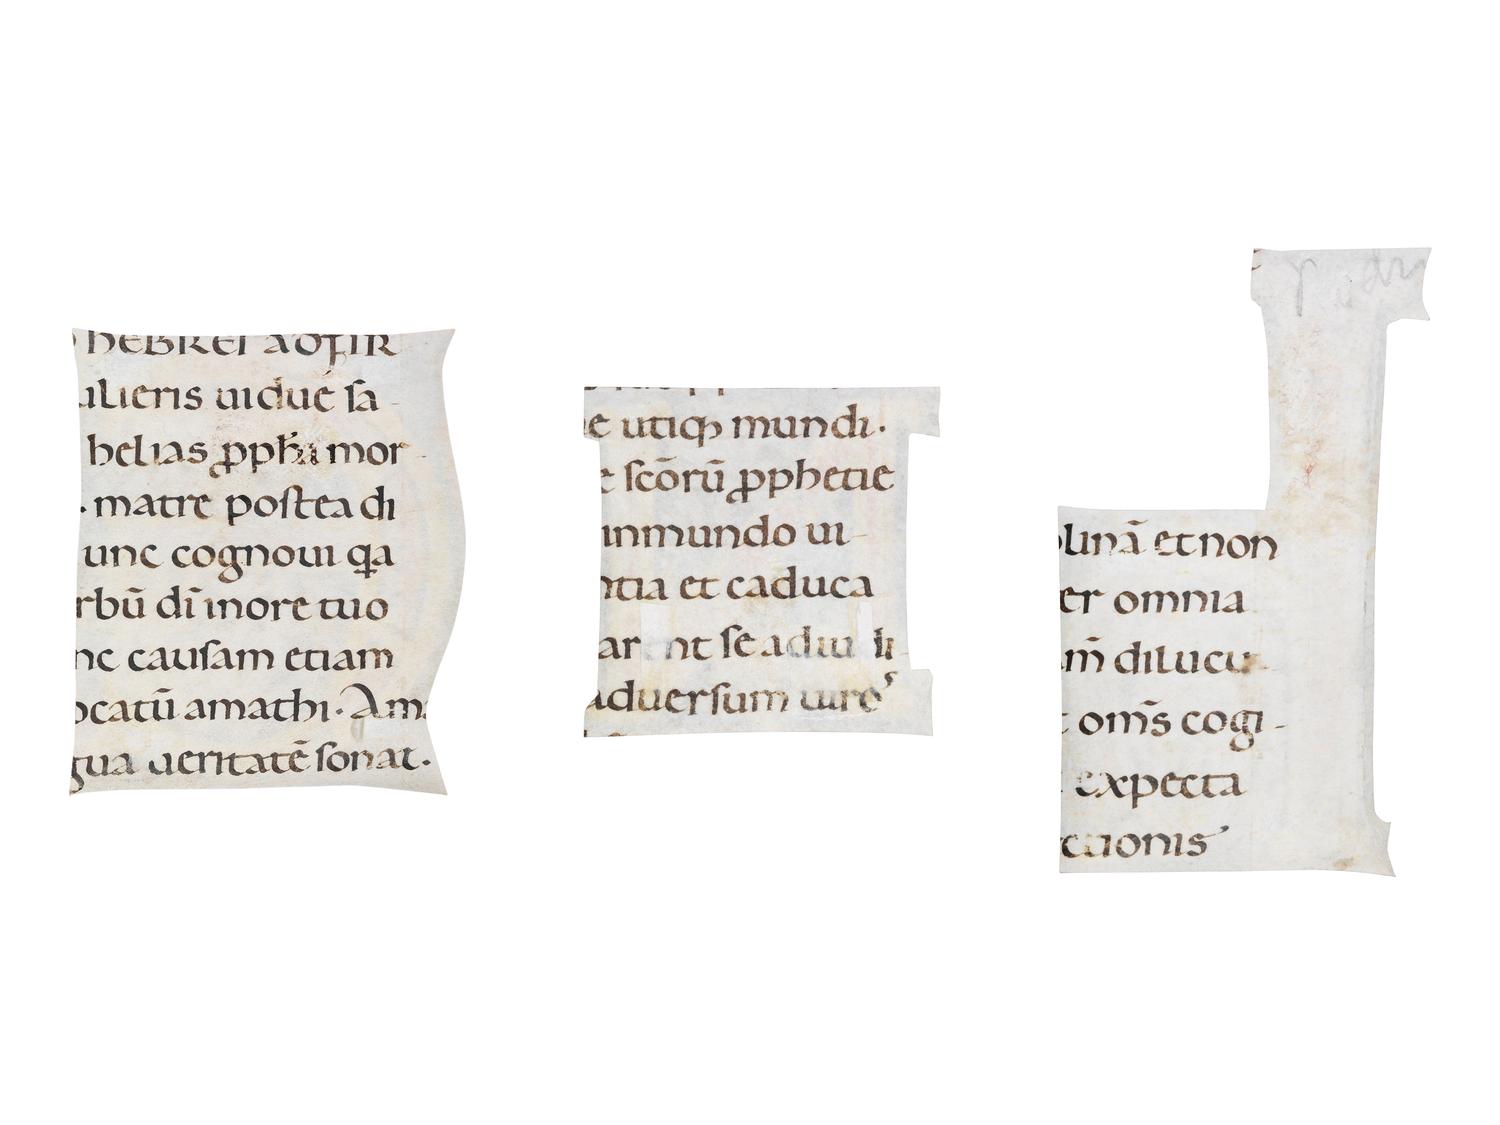 hebrei adfir
ulieris uidue sa-
helias ꝓpha mor-
· matre postea di
unc cognoui qa
rbū dī inore tuo
nc causam etiam
ocatū amathi · Ama
gua ueritatē sonat.
e utiqꝫ mundi.
e scōrū ꝓphetie
inmundo ui-
ntia et caduca
se adiudi
aduersum uiros
plinā et non
er omnia
m̄ dilucu-
t om̄s cogi-
expecta
ctionis